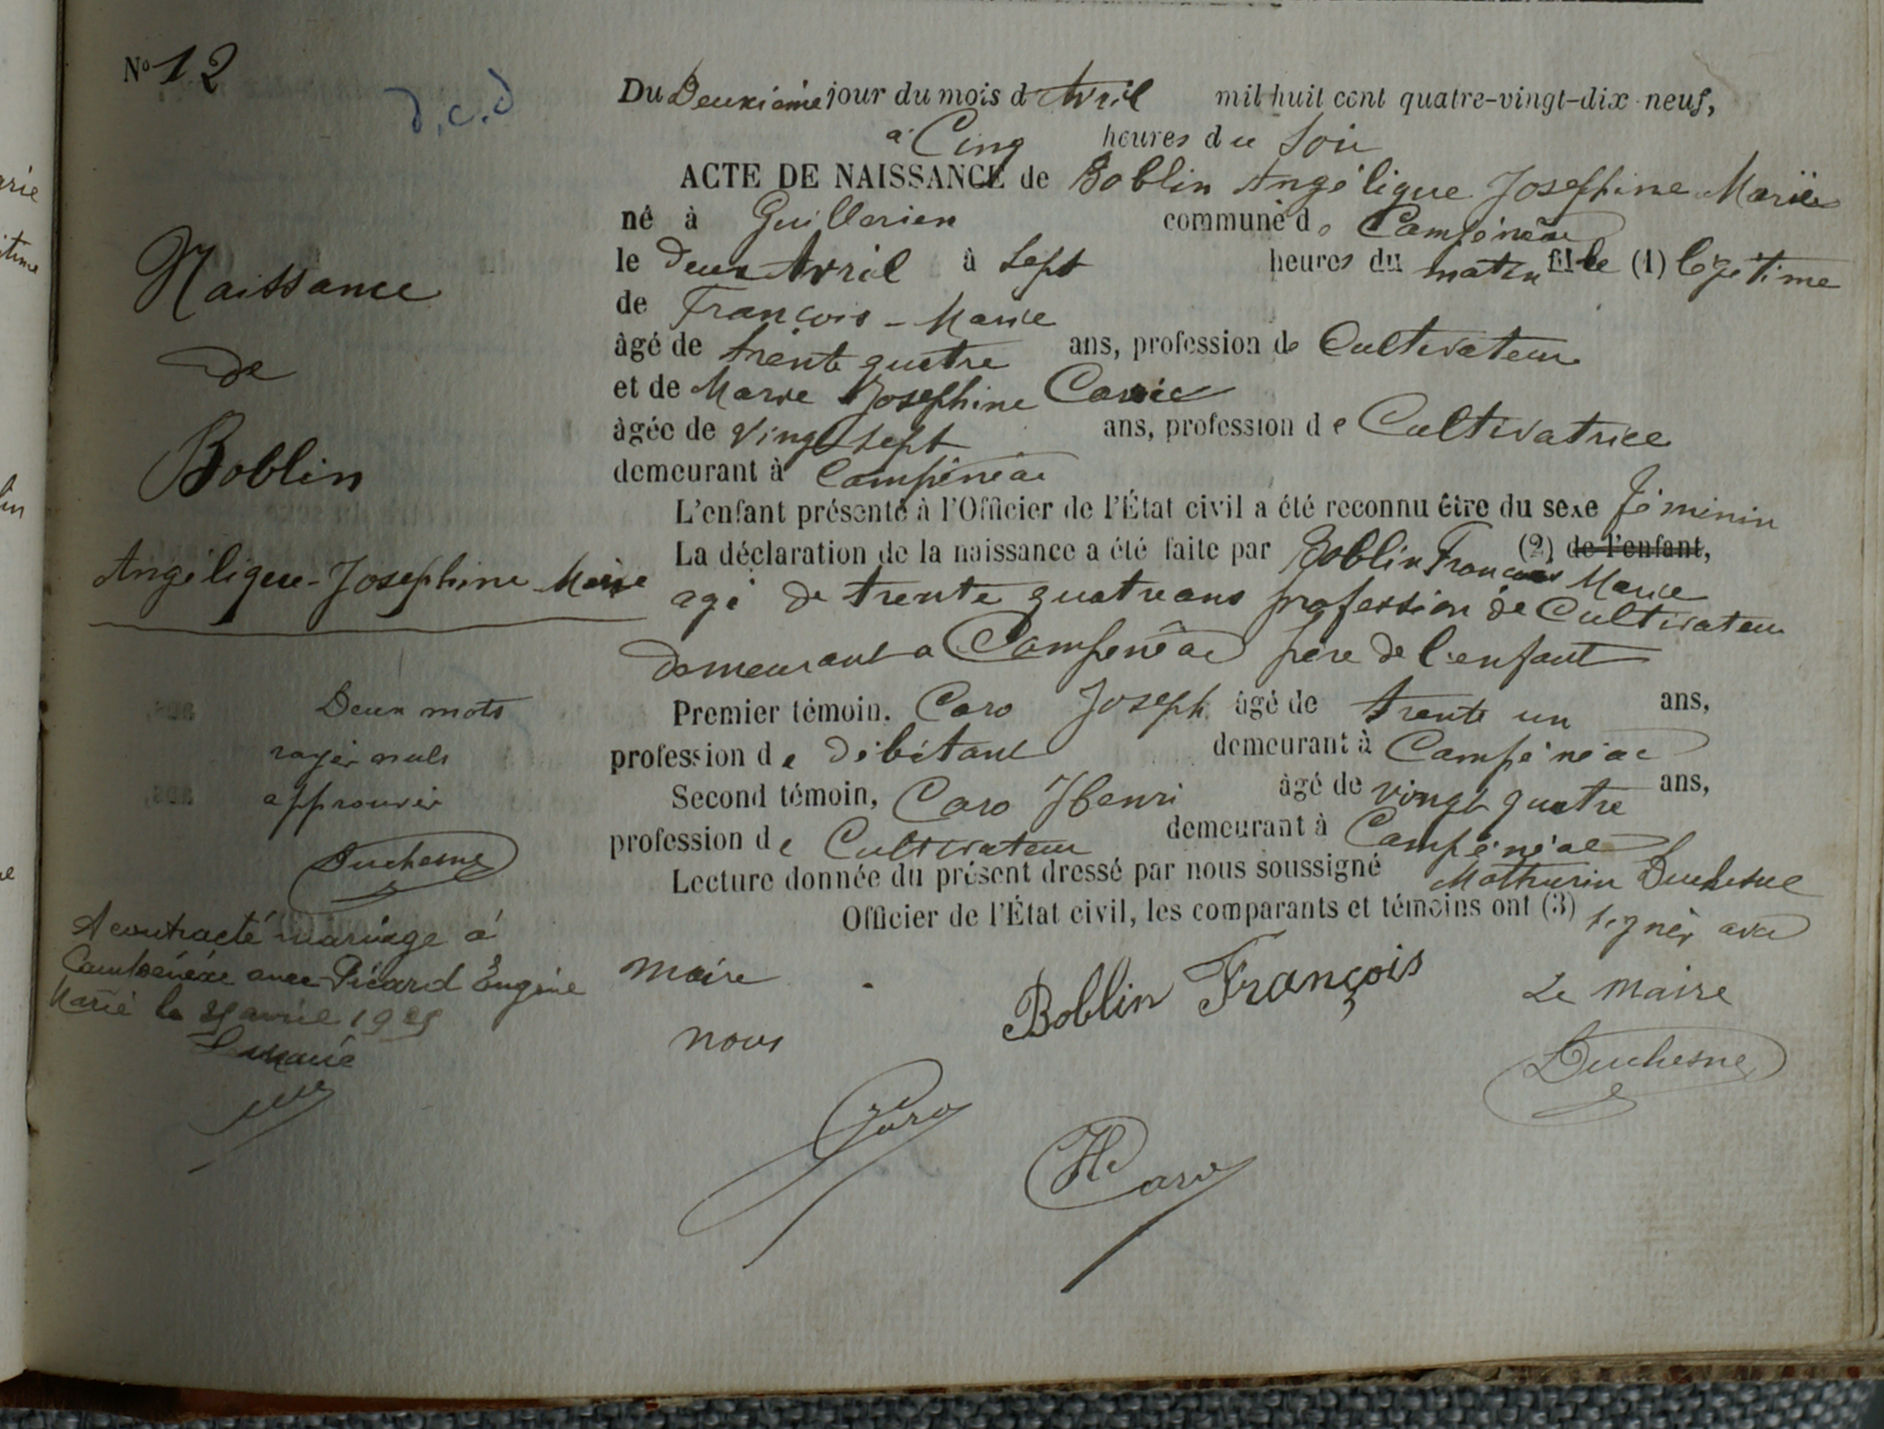 No 12
d.c.d
Naissance
de
Boblin
Angélique-Josephine Marie
Deux mots
rayés nuls
approuvés
Duchesne
A contracté mariage à
Campénéac avec Picard Eugène
Marie le avril 19
Le Maire
Du Deuxième jour du mois d Avril mil huit cent quatre-vingt-dix neuf,
a Cinq heures du Soir
ACTE DE NAISSANCE de Boblin Angélique Josephine Marie
né à Guillerien commune de Campénéac
le deux Avril à Sept heures du matin fille (1) légitime
de François-Marie
âgé de trente quatre ans, profession de Cultivateur
et de Marie Josephine
âgée de vingt sept ans, profession de Cultivatrice
demeurant à Campénéac
L'enfant présenté à l'Officier de l'État civil a été reconnu être du sexe féminin
La déclaration de la naissance a été faite par Boblin François Marie (2) de l'enfant,
agé de trente quatre ans profession de Cultivateur
demeurant a Campénéac père de l'enfant
Premier témoin, Caro Joseph âgé de trente un ans,
profession de débitant demeurant à Campénéac
Second témoin, Caro Henri âgé de vingt quatre ans,
profession de Cultivateur demeurant à Campénéac
Lecture donnée du présent dressé par nous soussigné Mathurin Duchesne
Officier de l'État civil, les comparants et témoins ont (3) signés avec
maire
nous
Boblin François
Le Maire
Duchesne
Caro
H Caro